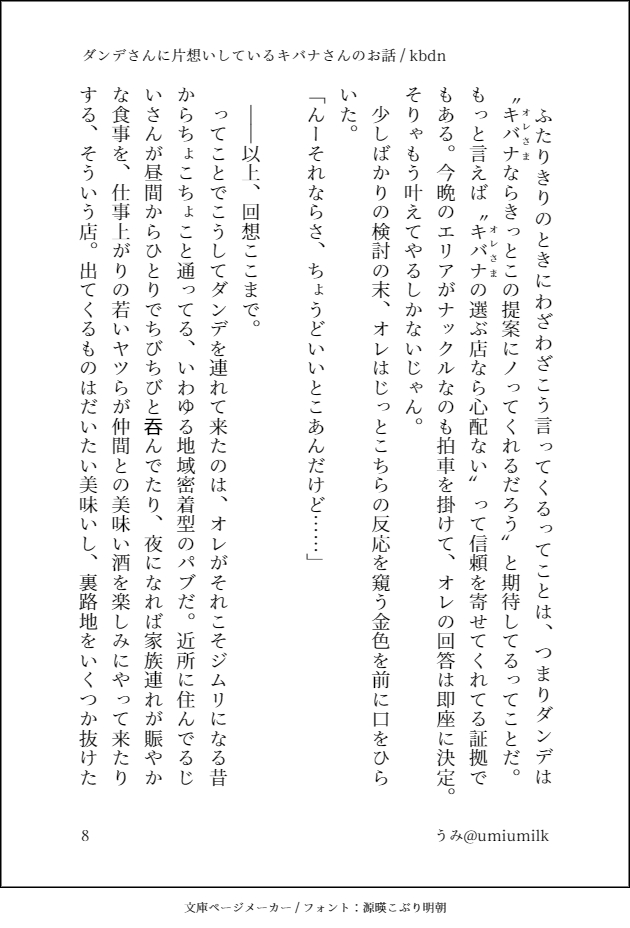 ダンデさんに片想いしているキバナさんのお話 / kbdn
ふたりきりのときにわざわざこう言ってくるってことは、つまりダンデは
〝キバナならきっとこの提案にノってくれるだろう〟と期待してるってことだ。
オレさま
もっと言えば〝キバナの選ぶ店なら心配ない〟って信頼を寄せてくれてる証拠で
オレさま
もある。今晩のエリアがナックルなのも拍車を掛けて、オレの回答は即座に決定。
そりゃもう叶えてやるしかないじゃん。
少しばかりの検討の末、オレはじっとこちらの反応を窺う金色を前に口をひら
いた。
「んーそれならさ、ちょうどいいとこあんだけど……」
――以上、回想ここまで。
ってことでこうしてダンデを連れて来たのは、オレがそれこそジムリになる昔
からちょこちょこと通ってる、いわゆる地域密着型のパブだ。近所に住んでるじ
いさんが昼間からひとりでちびちびと呑んでたり、夜になれば家族連れが賑やか
な食事を、仕事上がりの若いヤツらが仲間との美味い酒を楽しみにやって来たり
する、そういう店。出てくるものはだいたい美味いし、裏路地をいくつか抜けた
8
うみ@umiumilk
文庫ページメーカー / フォント：源暎こぶり明朝